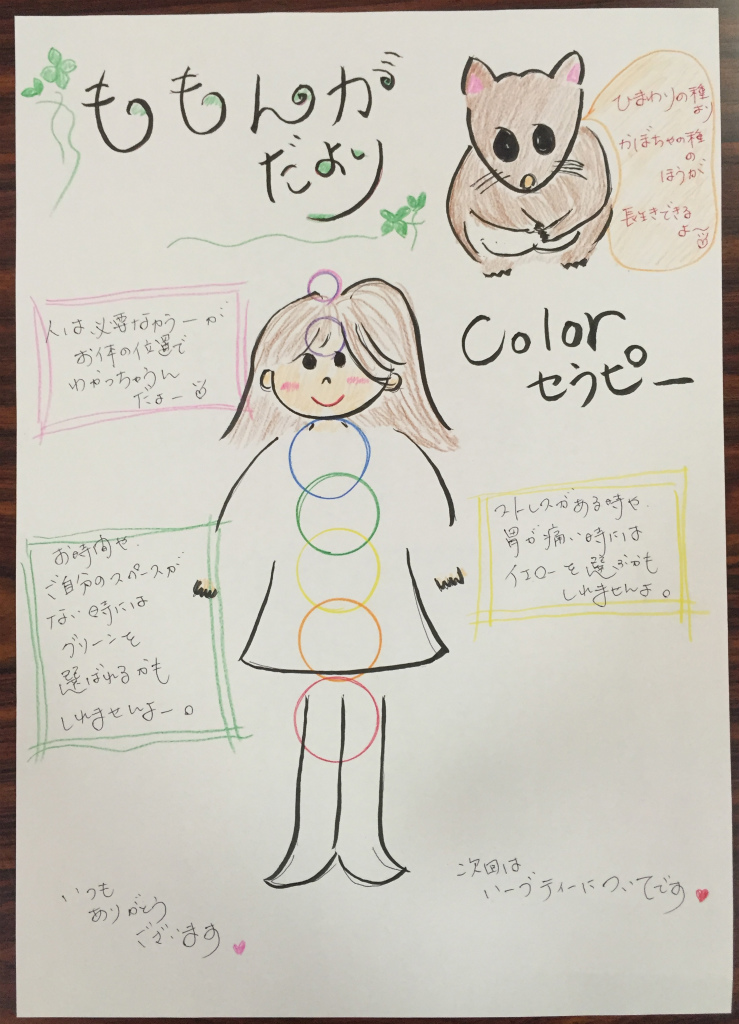 ももんが
だより
ひまわりの種
より
かぼちゃの種
の
ほうが
長生きできる
よ〜
Color
セラピー
人は必要なカラーが
お体の位置で
わかっちゃうん
だよー
ストレスがある時や
胃が痛い時には
イエローを選ぶかも
しれませんよ。
お時間や
ご自分のスペースが
ない時には
グリーンを
選ばれるかも
しれませんよー。
次回は
ハーブティーについてです
いつも
ありがとう
ございます